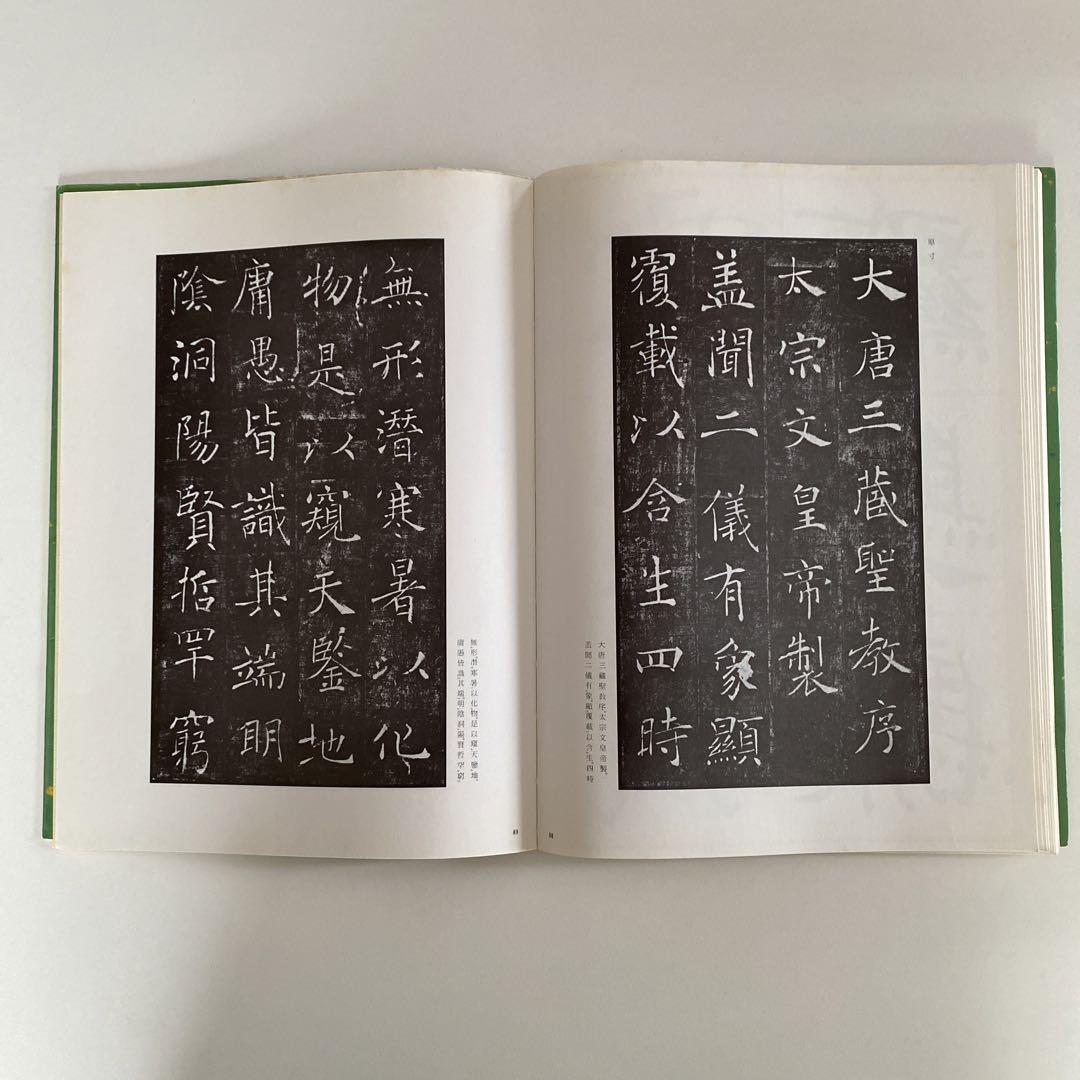 原寸
大唐三蔵聖教序
太宗文皇帝製
盖聞二儀有象顯
覆載以含生四時
大唐三藏聖教序。太宗文皇帝製。
盖聞二儀有象、顯覆載以含生、四時
無形潛寒暑以化
物是以窺天鑒地
庸愚皆識其端明
陰洞陽賢哲罕窮
無形、潛寒暑以化物。是以窺天鑒地、
庸愚皆識其端、明陰洞陽、賢哲罕窮